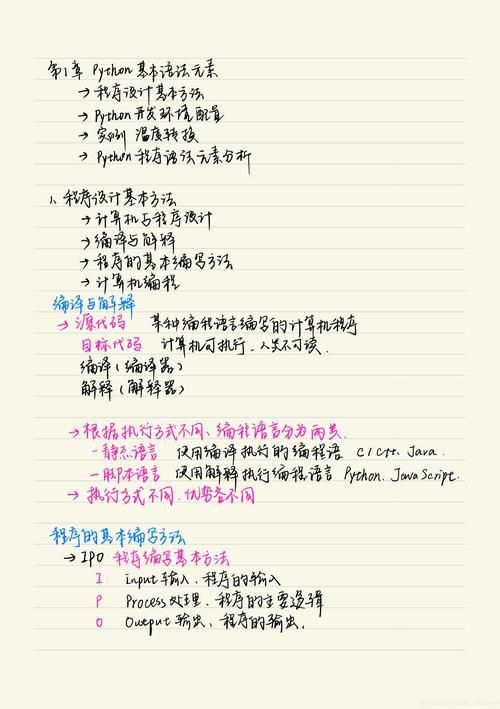 第1章 Python基本语法元素
→ 程序设计基本方法
→ Python开发环境配置
→ 实例 温度转换
→ Python程序语法元素分析
1、程序设计基本方法
→ 计算机与程序设计
→ 编译与解释
→ 程序的基本编写方法
→ 计算机编程
编译与解释
→ 源代码 某种编程语言编写的计算机程序
目标代码 计算机可执行、人类不可读.
编译(编译器)
解释(解释器)
→ 根据执行方式不同、编程语言分为两类.
—静态语言 使用编译执行的编程语 C/C++、Java.
—脚本语言 使用解释执行编程语言 Python、JavaScript.
→ 执行方式不同.优势各不同
程序的基本编写方法
→ IPO 程序编写基本方法
I Input 输入、程序的输入
P Process 处理、程序的主要逻辑
O Output 输出、程序的输出.